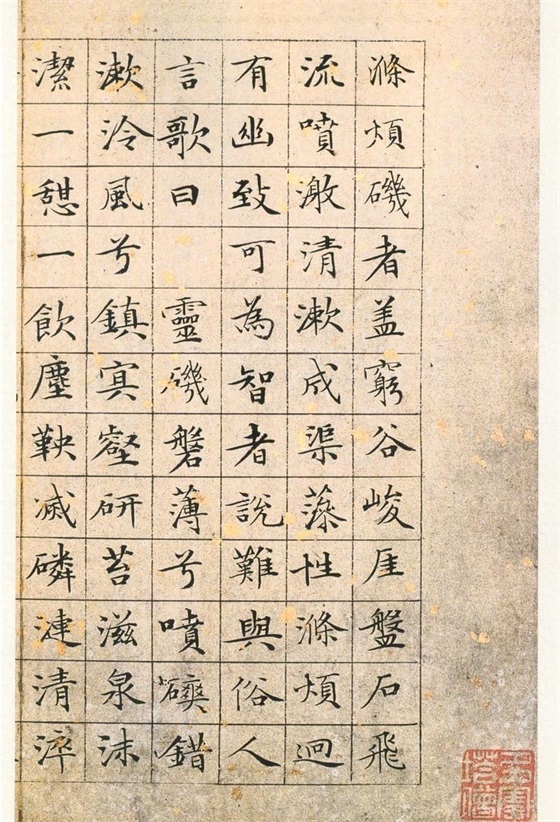 滌煩磯者盖窮谷峻厓盤石飛
流噴激清漱成渠藻性滌煩迥
有幽致可為智者說難與俗人
言歌曰 靈磯磐薄兮噴錯
漱泠風兮鎮冥壑研苔滋泉沫
潔一憇一飲塵鞅滅磷漣清淬